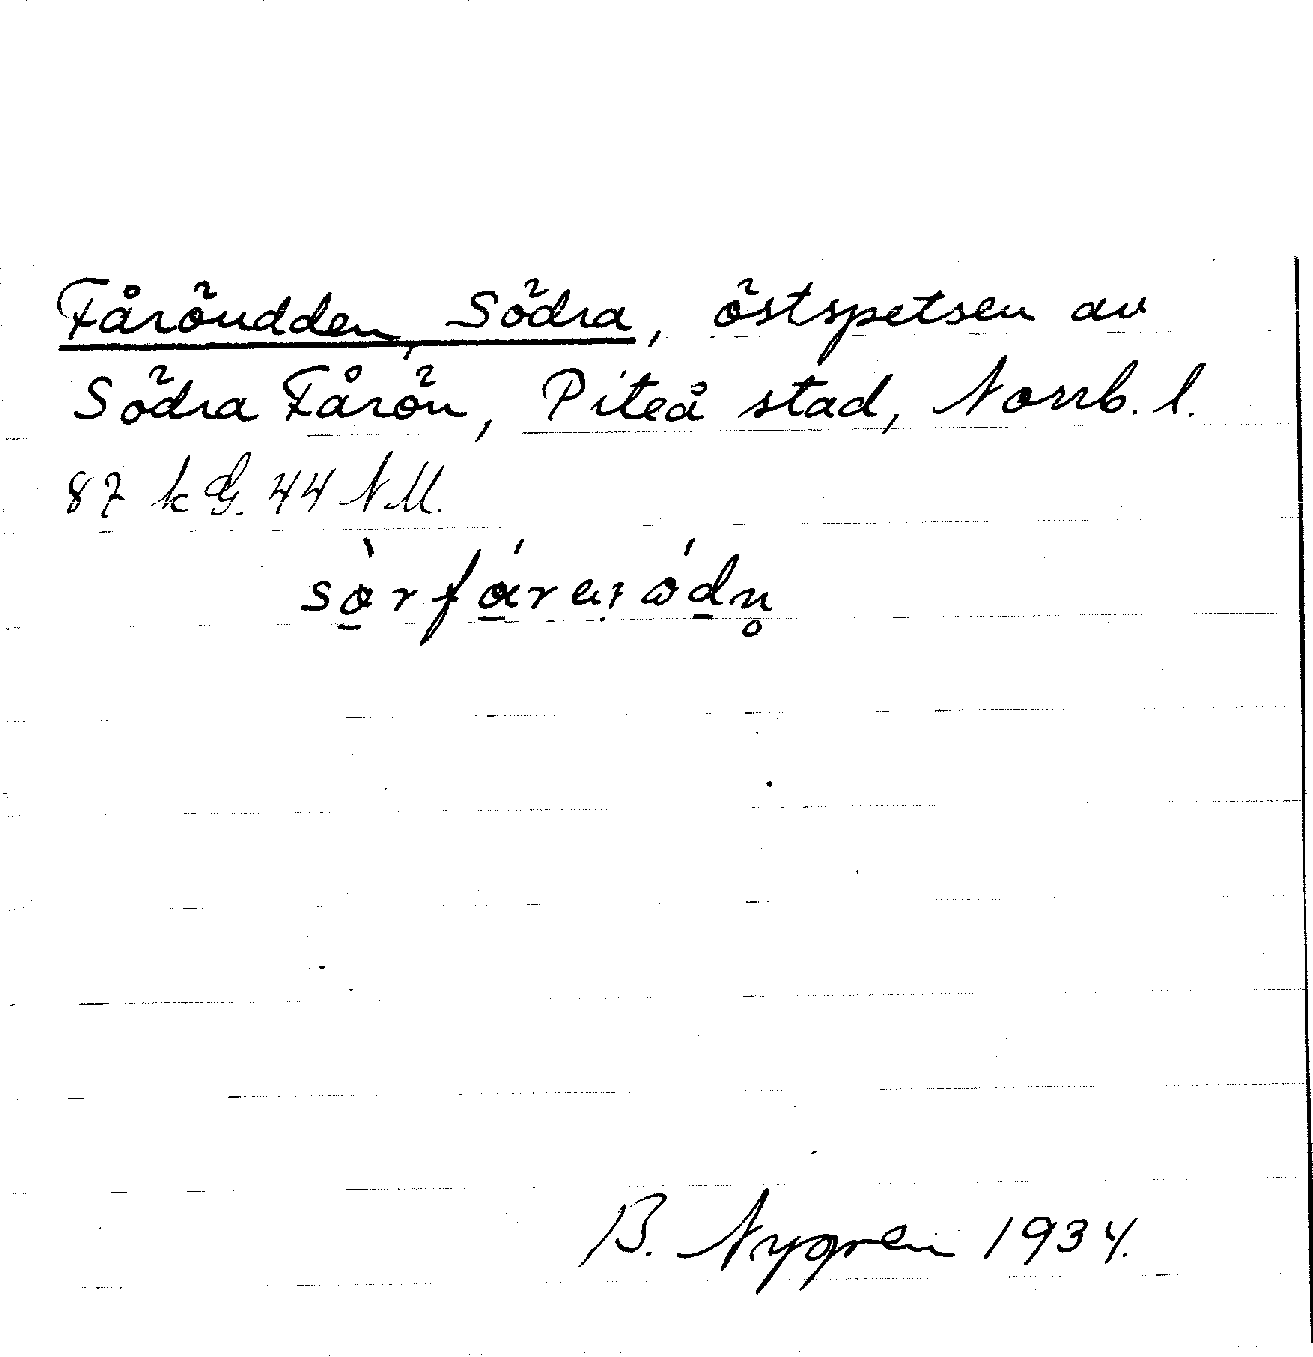 Fåröudden, Södra, östspetsen av
Södra Fårön, Piteå stad, Norrb. l.
87 k G. 44 NM.
B. Nygren 1934.